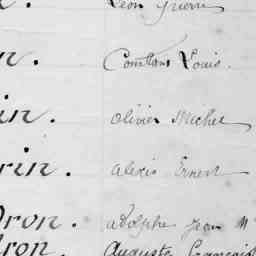 Léon Pierre
n. Constant Louis.
in. olivier Michel
rin. alexis Ernest
Dron. adolphe Jean M
dron. Auguste François